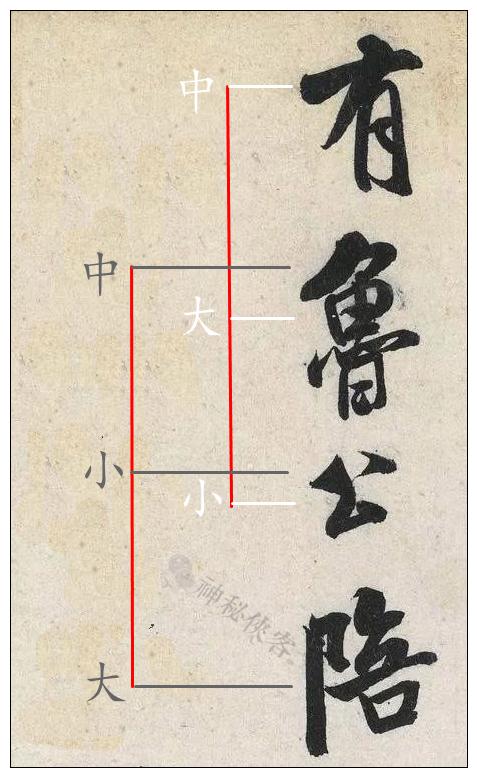 有魯公陪
中
大
小
中
小
大
神秘俠客